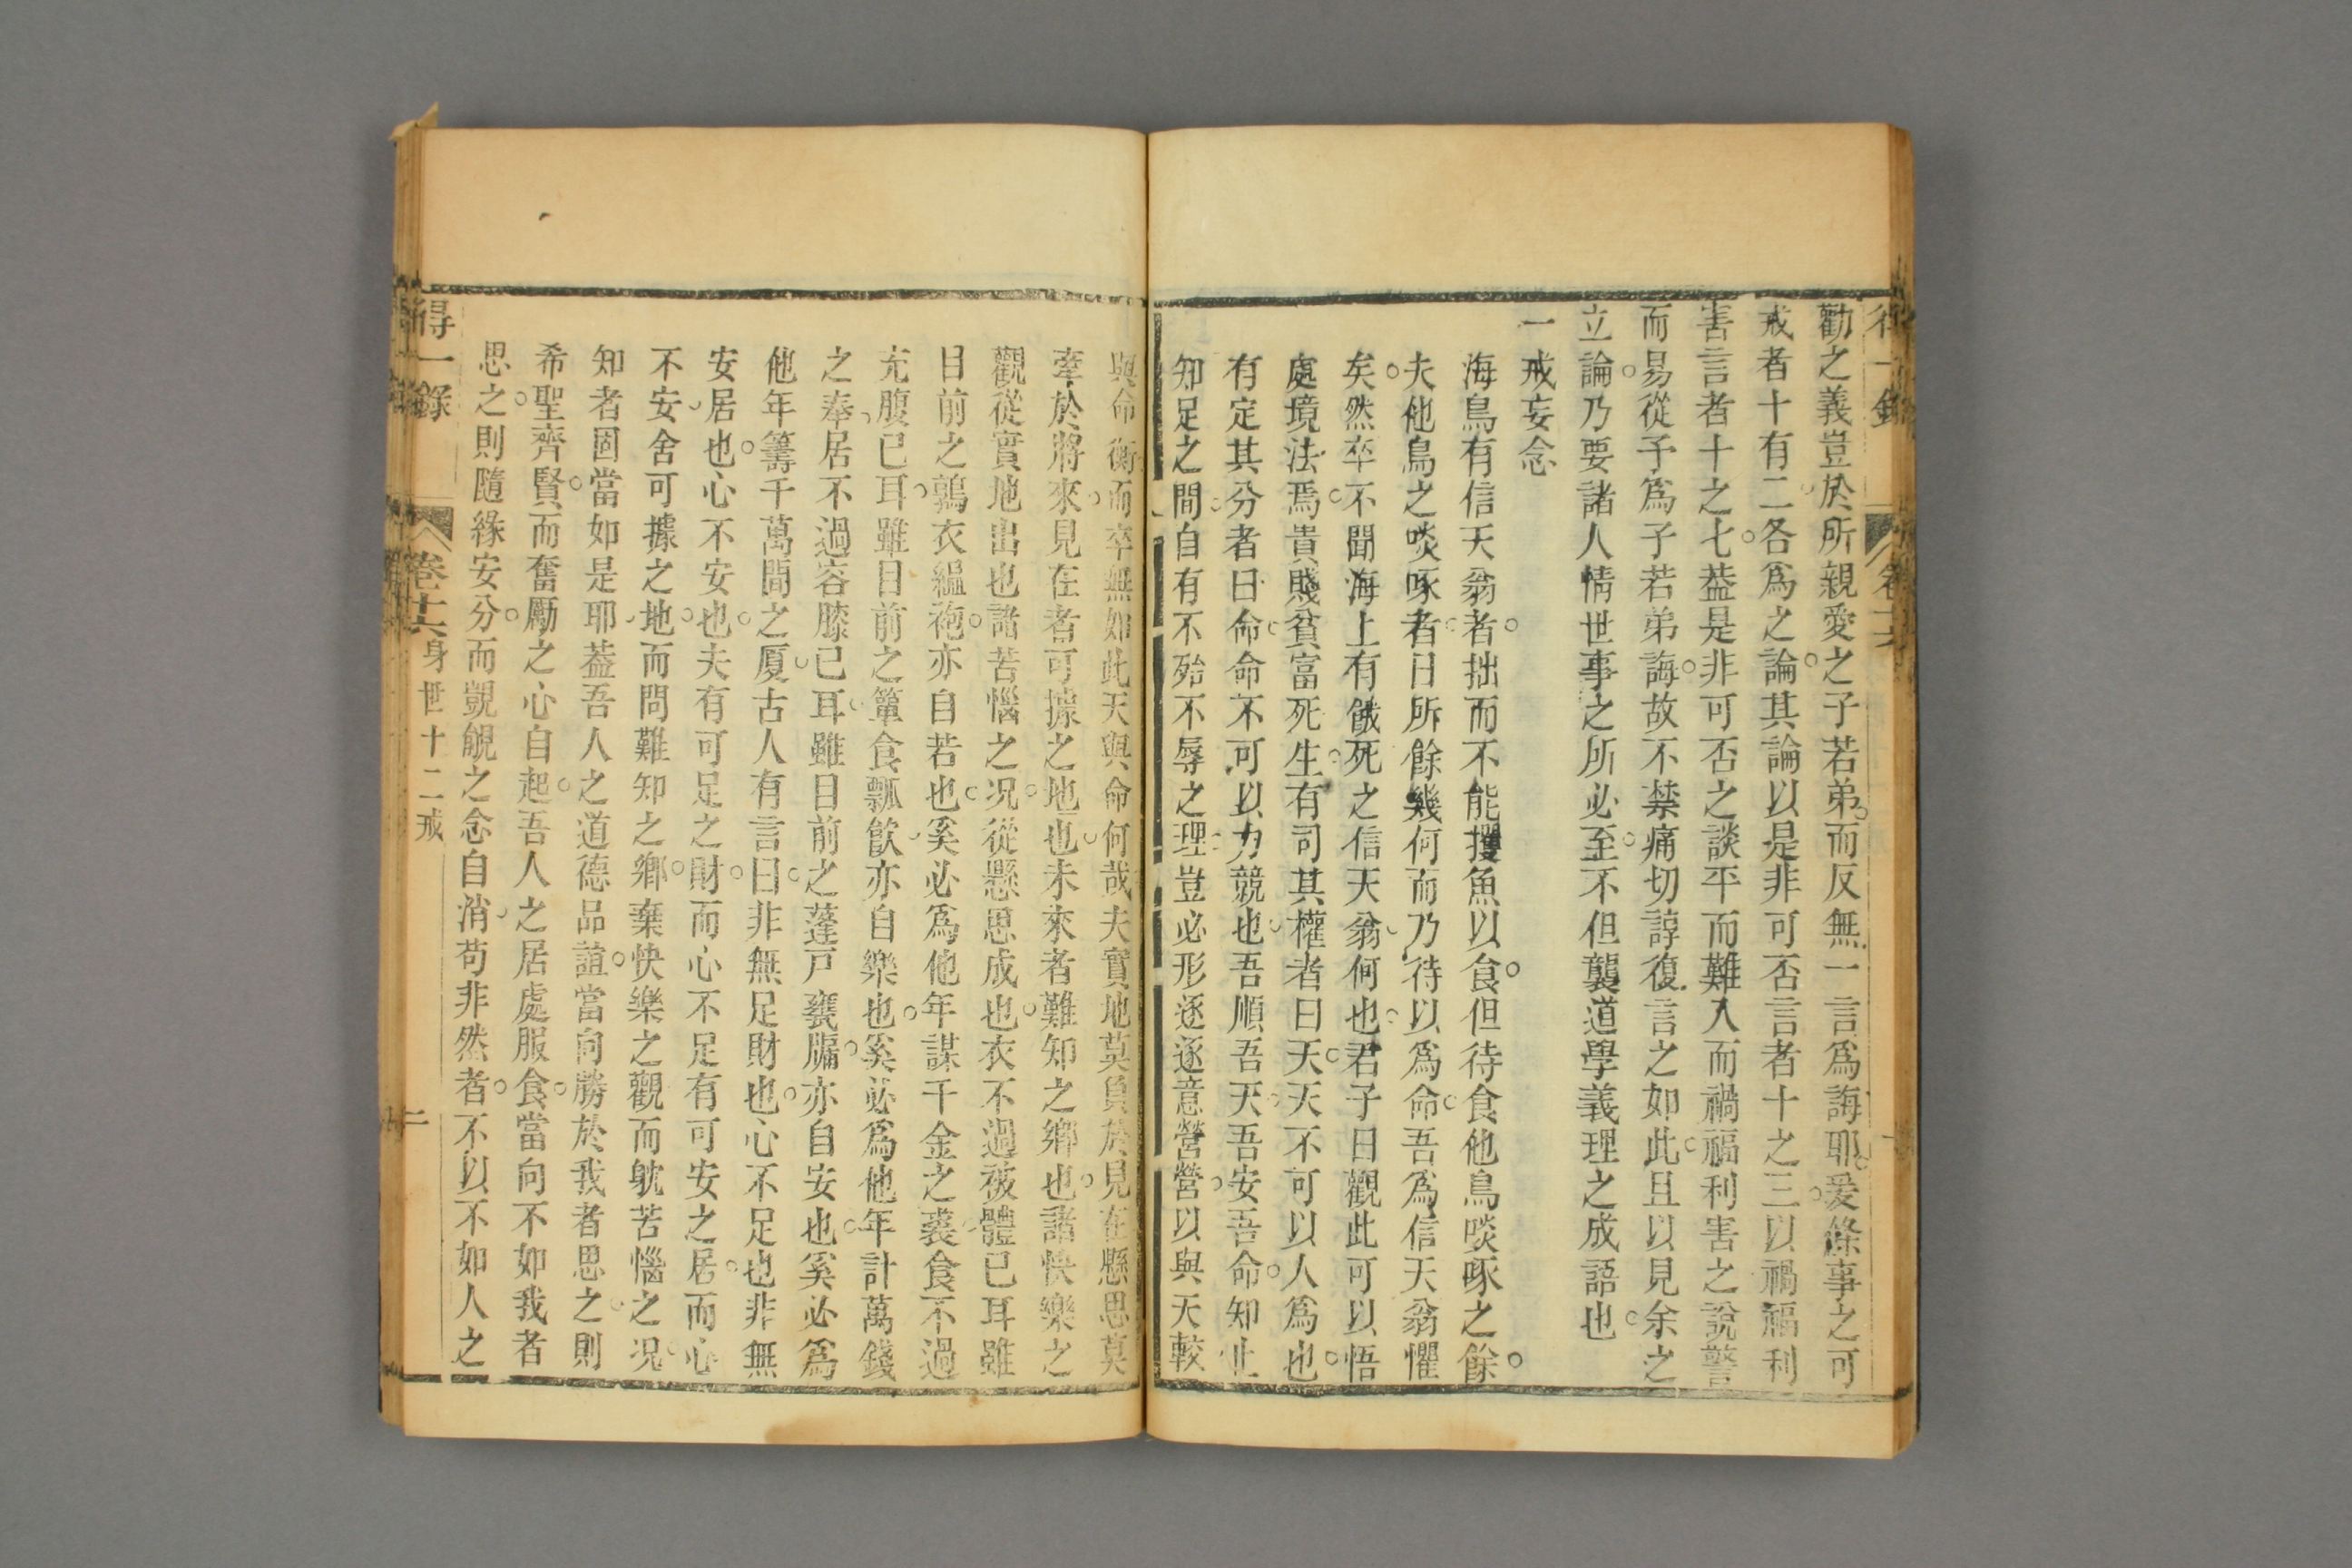 得一錄 卷十六
勸之義豈於所親愛之子若弟而反無一言爲誨耶爰條事之可
戒者十有二各爲之論其論以是非可否言者十之三以禍福利
害言者十之七葢是非可否之談平而難入而禍福利害之說警
而易從予爲子若弟誨故不禁痛切諄復言之如此且以見余之
立論乃要諸人情世事之所必至不但襲道學義理之成語也
一戒妄念
海鳥有信天翁者拙而不能攫魚以食但待食他鳥啖啄之餘
夫他鳥之啖啄者日所餘幾何而乃待以爲命吾爲信天翁懼
矣然卒不聞海上有餓死之信天翁何也君子曰觀此可以悟
處境法焉貴賤貧富死生有司其權者曰天天不可以人爲也
有定其分者曰命命不可以力競也吾順吾天吾安吾命知止
知足之間自有不殆不辱之理豈必形逐逐意營營以與天較
與命衡而卒無如此天與命何哉夫實地莫負於見在懸思莫
牽於將來見在者可據之地也未來者難知之鄉也諸快樂之
觀從實地出也諸苦惱之况從懸思成也衣不過被體已耳雖
目前之鶉衣縕袍亦自若也奚必爲他年謀千金之裘食不過
充腹已耳雖目前之簞食瓢飮亦自樂也奚必爲他年計萬錢
之奉居不過容膝已耳雖目前之蓬戸甕牖亦自安也奚必爲
他年籌千萬間之厦古人有言曰非無足財也心不足也非無
安居也心不安也夫有可足之財而心不足有可安之居而心
不安舍可據之地而問難知之鄉棄快樂之觀而躭苦惱之况
知者固當如是耶葢吾人之道德品誼當向勝於我者思之則
希聖齊賢而奮勵之心自起吾人之居處服食當向不如我者
思之則隨緣安分而覬覦之念自消苟非然者不以不如人之
得一錄 卷十六 身世十二戒 二